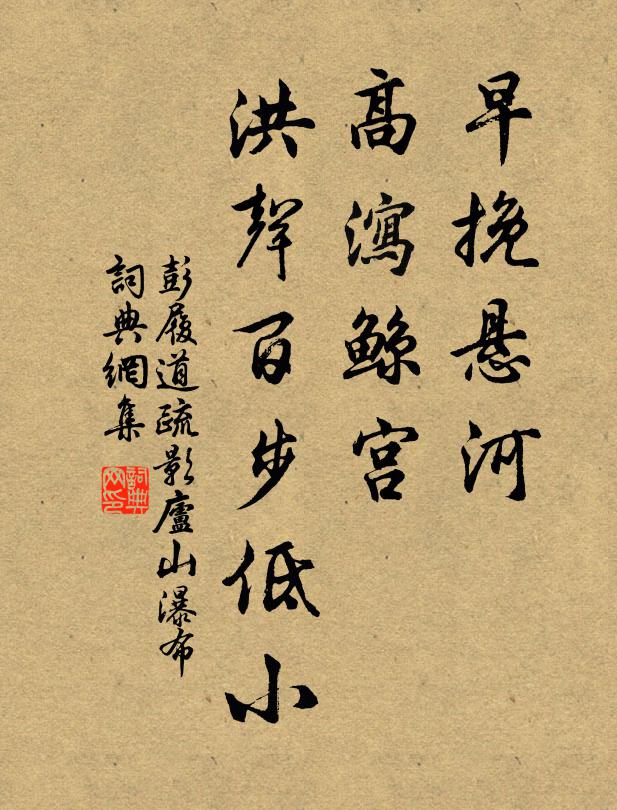 早挽悬河
高瀉鲸宫
洪聲百步低小
彭履道疏影廬山瀑布
詞典網集
詞典
网印